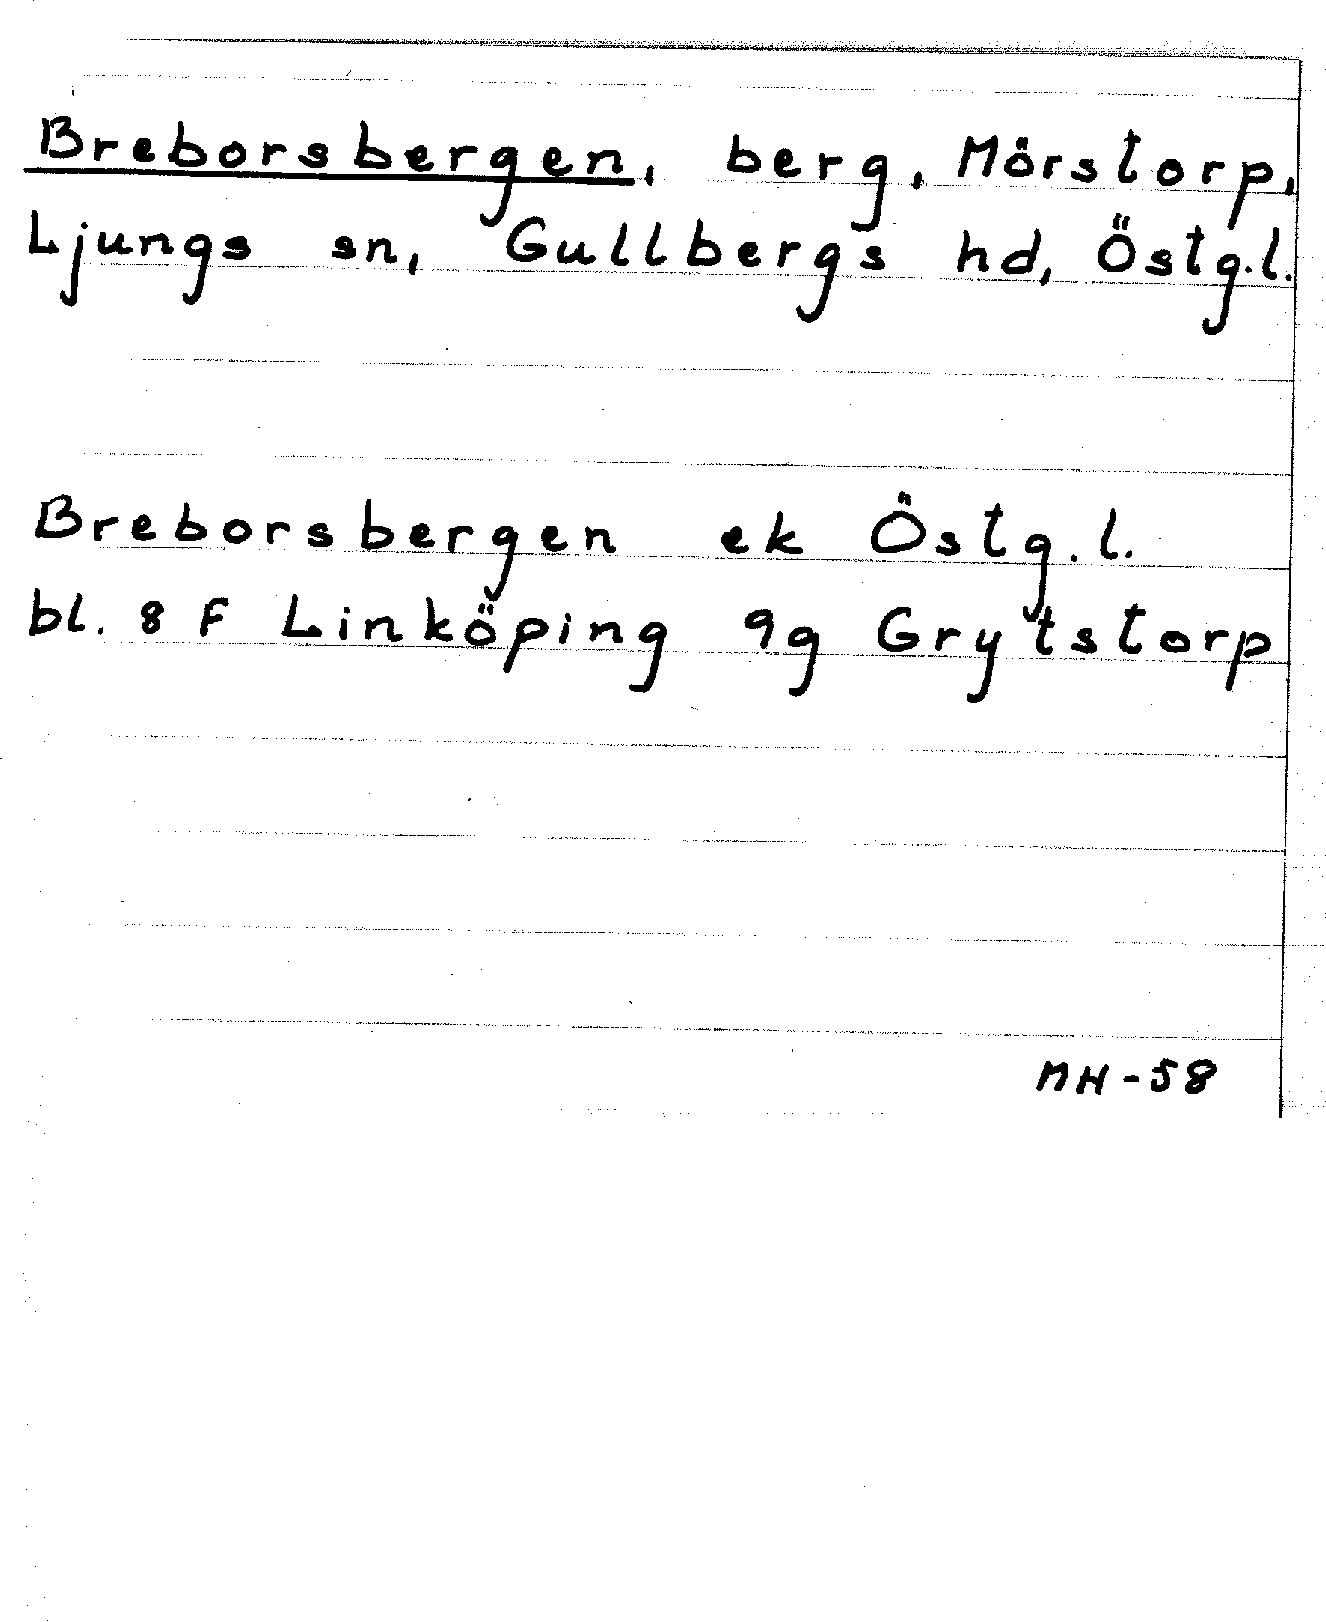 Breborsbergen, berg, Mörstorp,
Ljungs sn, Gullbergs hd, Östg.l.
Breborsbergen ek Östg.l.
bl. 8 F Linköping 9g Grytstorp
MH-58